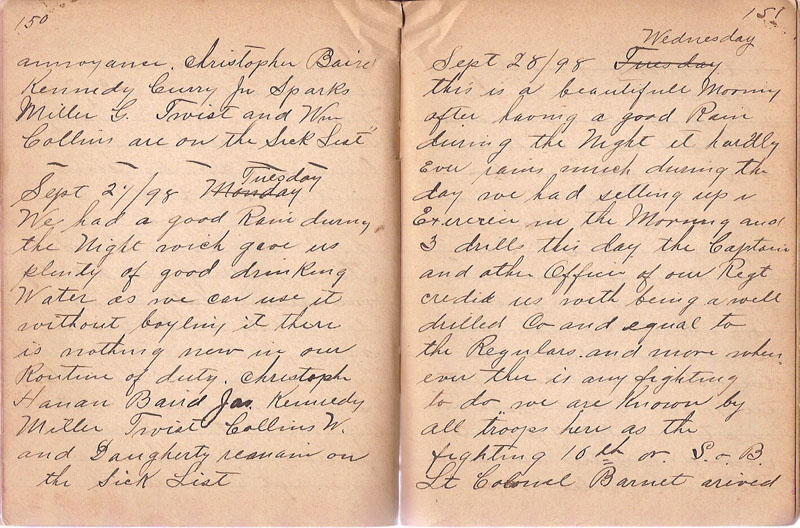 150
annoyance. Christopher Baird
Kennedy Curry Jr Sparks
Miller G. Twist and Wm
Collins are on the Sick List"
Tuesday
Sept 27/98 Monday
We had a good Rain during
the Night wich gave us
plenty of good drinking
Water as we can use it
without boyling it there
is nothing new in our
Routine of duty. Christoph
Hanan Baird Jas. Kennedy
Miller Twist Collins W.
and Daugherty remain on
the Sick List
151
Wednesday
Sept 28/98 Tuesday
this is a beautifull Morning
after having a good Rain
during the Night it hardly
Ever rains much during the
day we had setting up
in the Morning and
3 drills this day the Captain
and other Officer of our Regt
credid us with being a well
drilled Co and equal to
the Regulars. and more when
ever ther is any fighting
to do we are Known by
all troops here as the
fighting 10th or S.o.B.
Lt Colonel Barnet arived